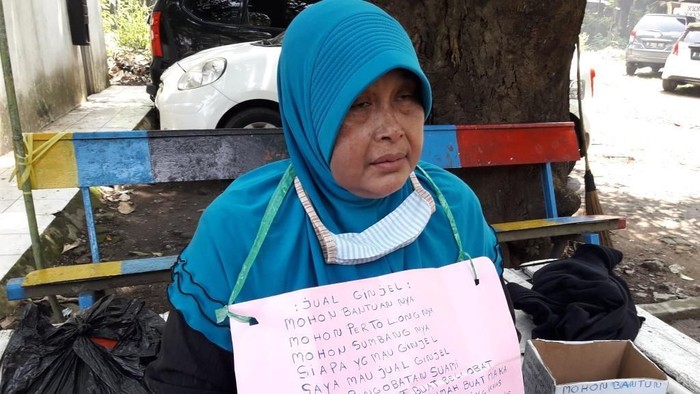 : JUAL GINJEL :
MOHON BANTUAN NYA
MOHON PERTOLONGNYA
MOHON SUMBANG NYA
SIAPA YG MAU GINJEL
SAYA MAU JUAL GINJEL
PENGOBATAN SUAMI
BUAT BEROBAT
BUAT
MOHON BANTUN